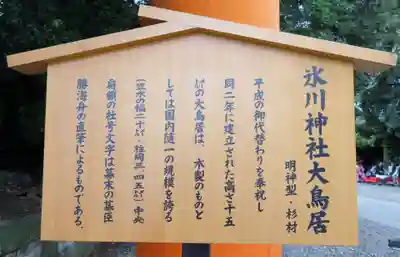 氷川神社大鳥居
明神型・杉材
平成の御代替わりを奉祝し
同二年に建立された高さ十五
㍍の大鳥居は、木製のものと
しては国内随一の規模を誇る
(笠木の幅二十㍍・柱
中央
扁額の社号文字は幕末の幕臣
勝海舟の直筆によるものである。